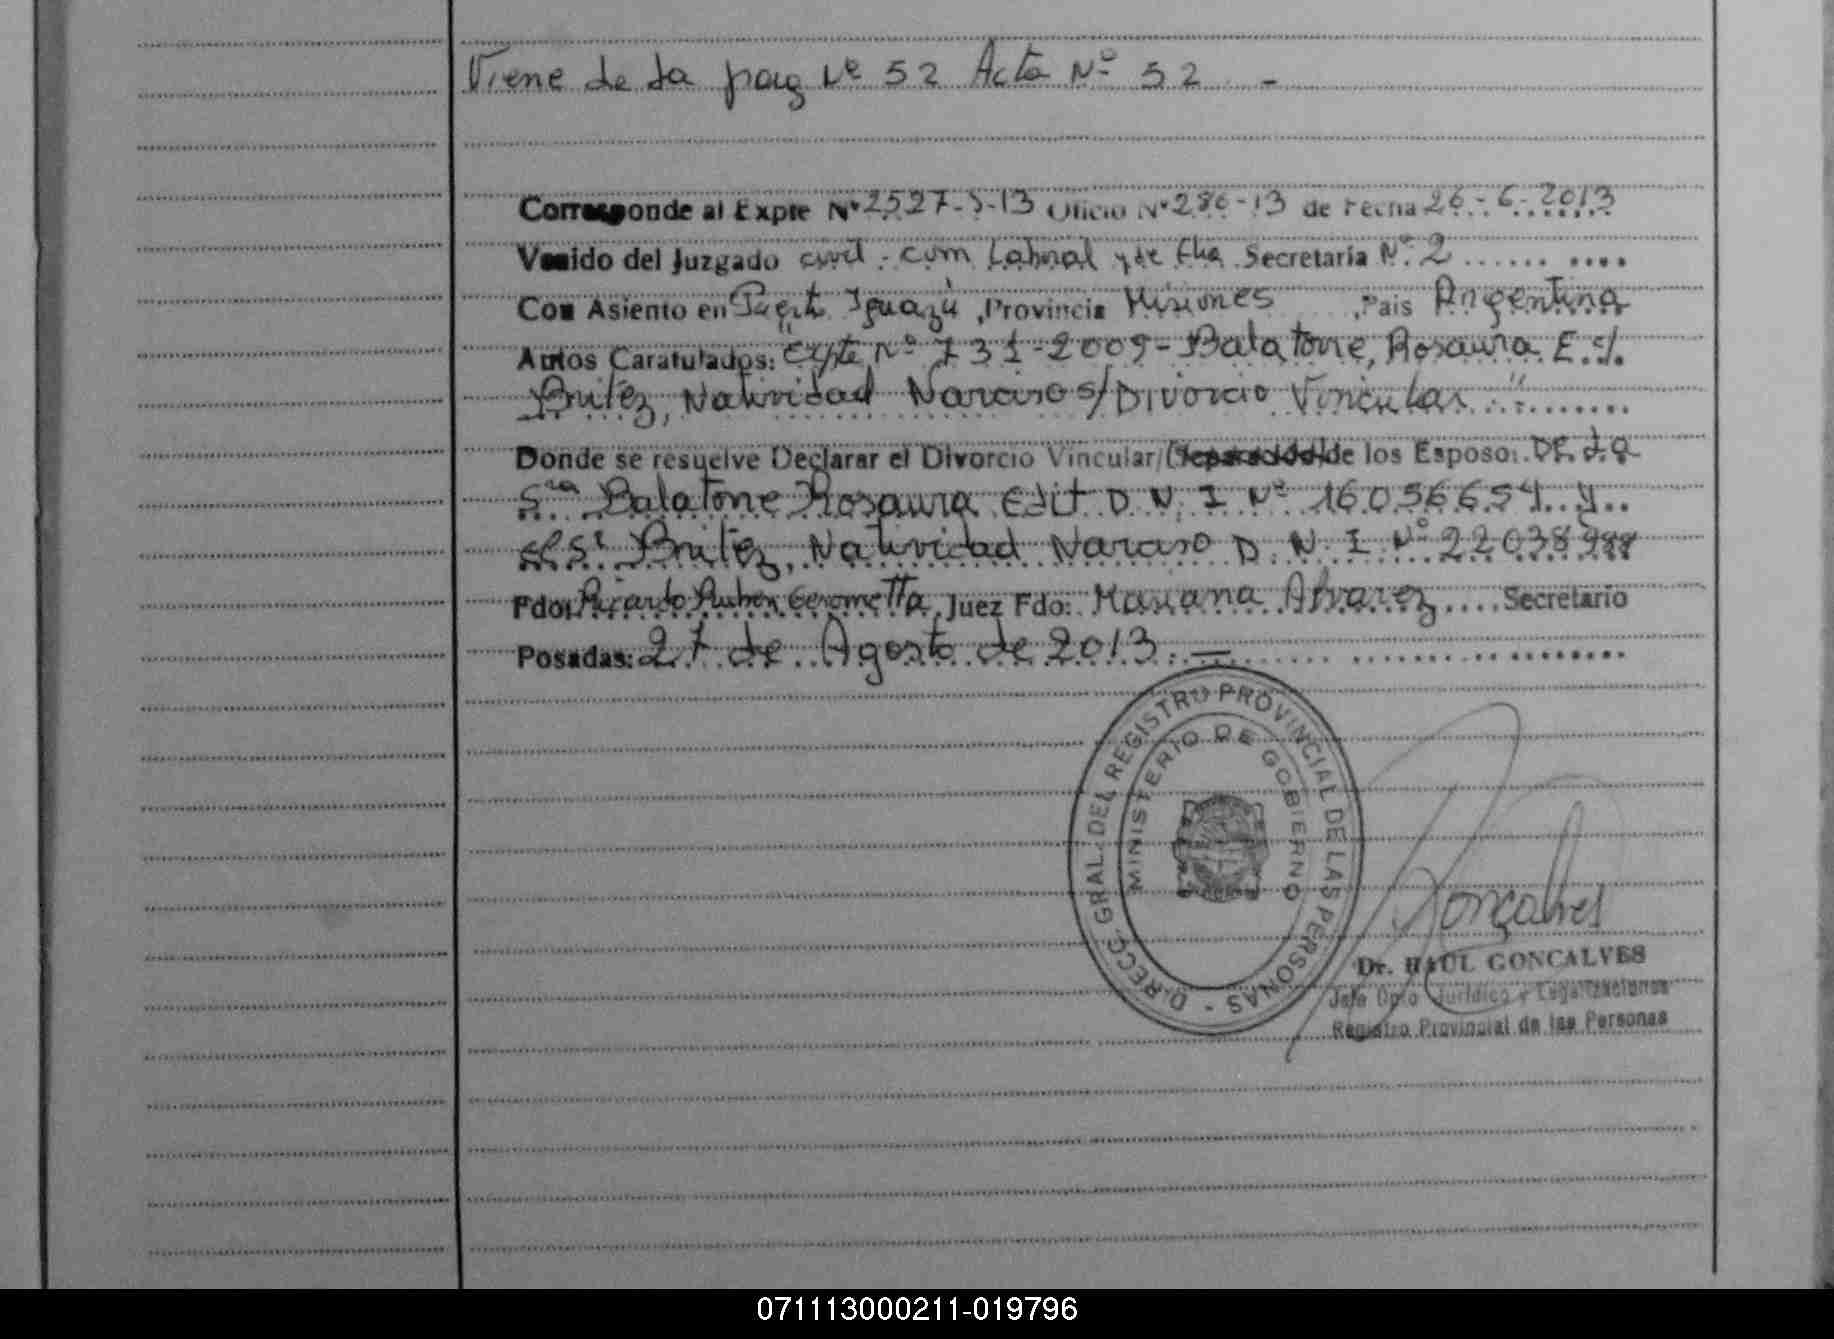 Viene de la pag Nº 52 Acta Nº 52 -
Corresponde al Expte Nº 2527-S-13 Oficio Nº 286-13 de Fecha 26-6-2013
Venido del Juzgado civil. com Laboral y de flia Secretaria Nº 2
Con Asiento en Puerto Iguazú, Provincia Misiones, Pais Argentina
Autos Caratulados: "Expte Nº 731-2009- Balatorre, Rosaura E. c/.
Britez, Natividad Narciso s/ Divorcio Vincular"
Donde se resuelve Declarar el Divorcio Vincular/ de los Esposo: DE la
Sra Balatorre Rosaura Edit D. N. I Nº 16056654 y
el Sr Britez, Natividad Narciso D. N. I. Nº 22038988
Fdo: Ricardo Ruben Gerometta, Juez Fdo: Mariana Alvarez Secretario
Posadas: 27 de Agosto de 2013. —
DIRECC. GRAL. DEL REGISTRO PROVINCIAL DE LAS PERSONAS -
MINISTERIO DE GOBIERNO
Gonçalves
Dr. RAUL GONCALVES
Jefe Dpto Jurídico y Legalizaciones
Registro Provincial de las Personas
071113000211-019796